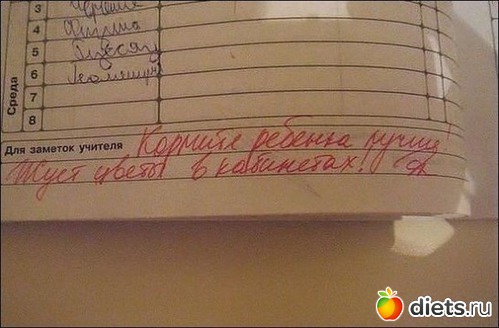 3 Черчение
4 Физика
5
6 Геометрия
7
Среда
8
Для заметок учителя Кормите ребенка лучше!
Жует цветы в кабинетах!
diets.ru